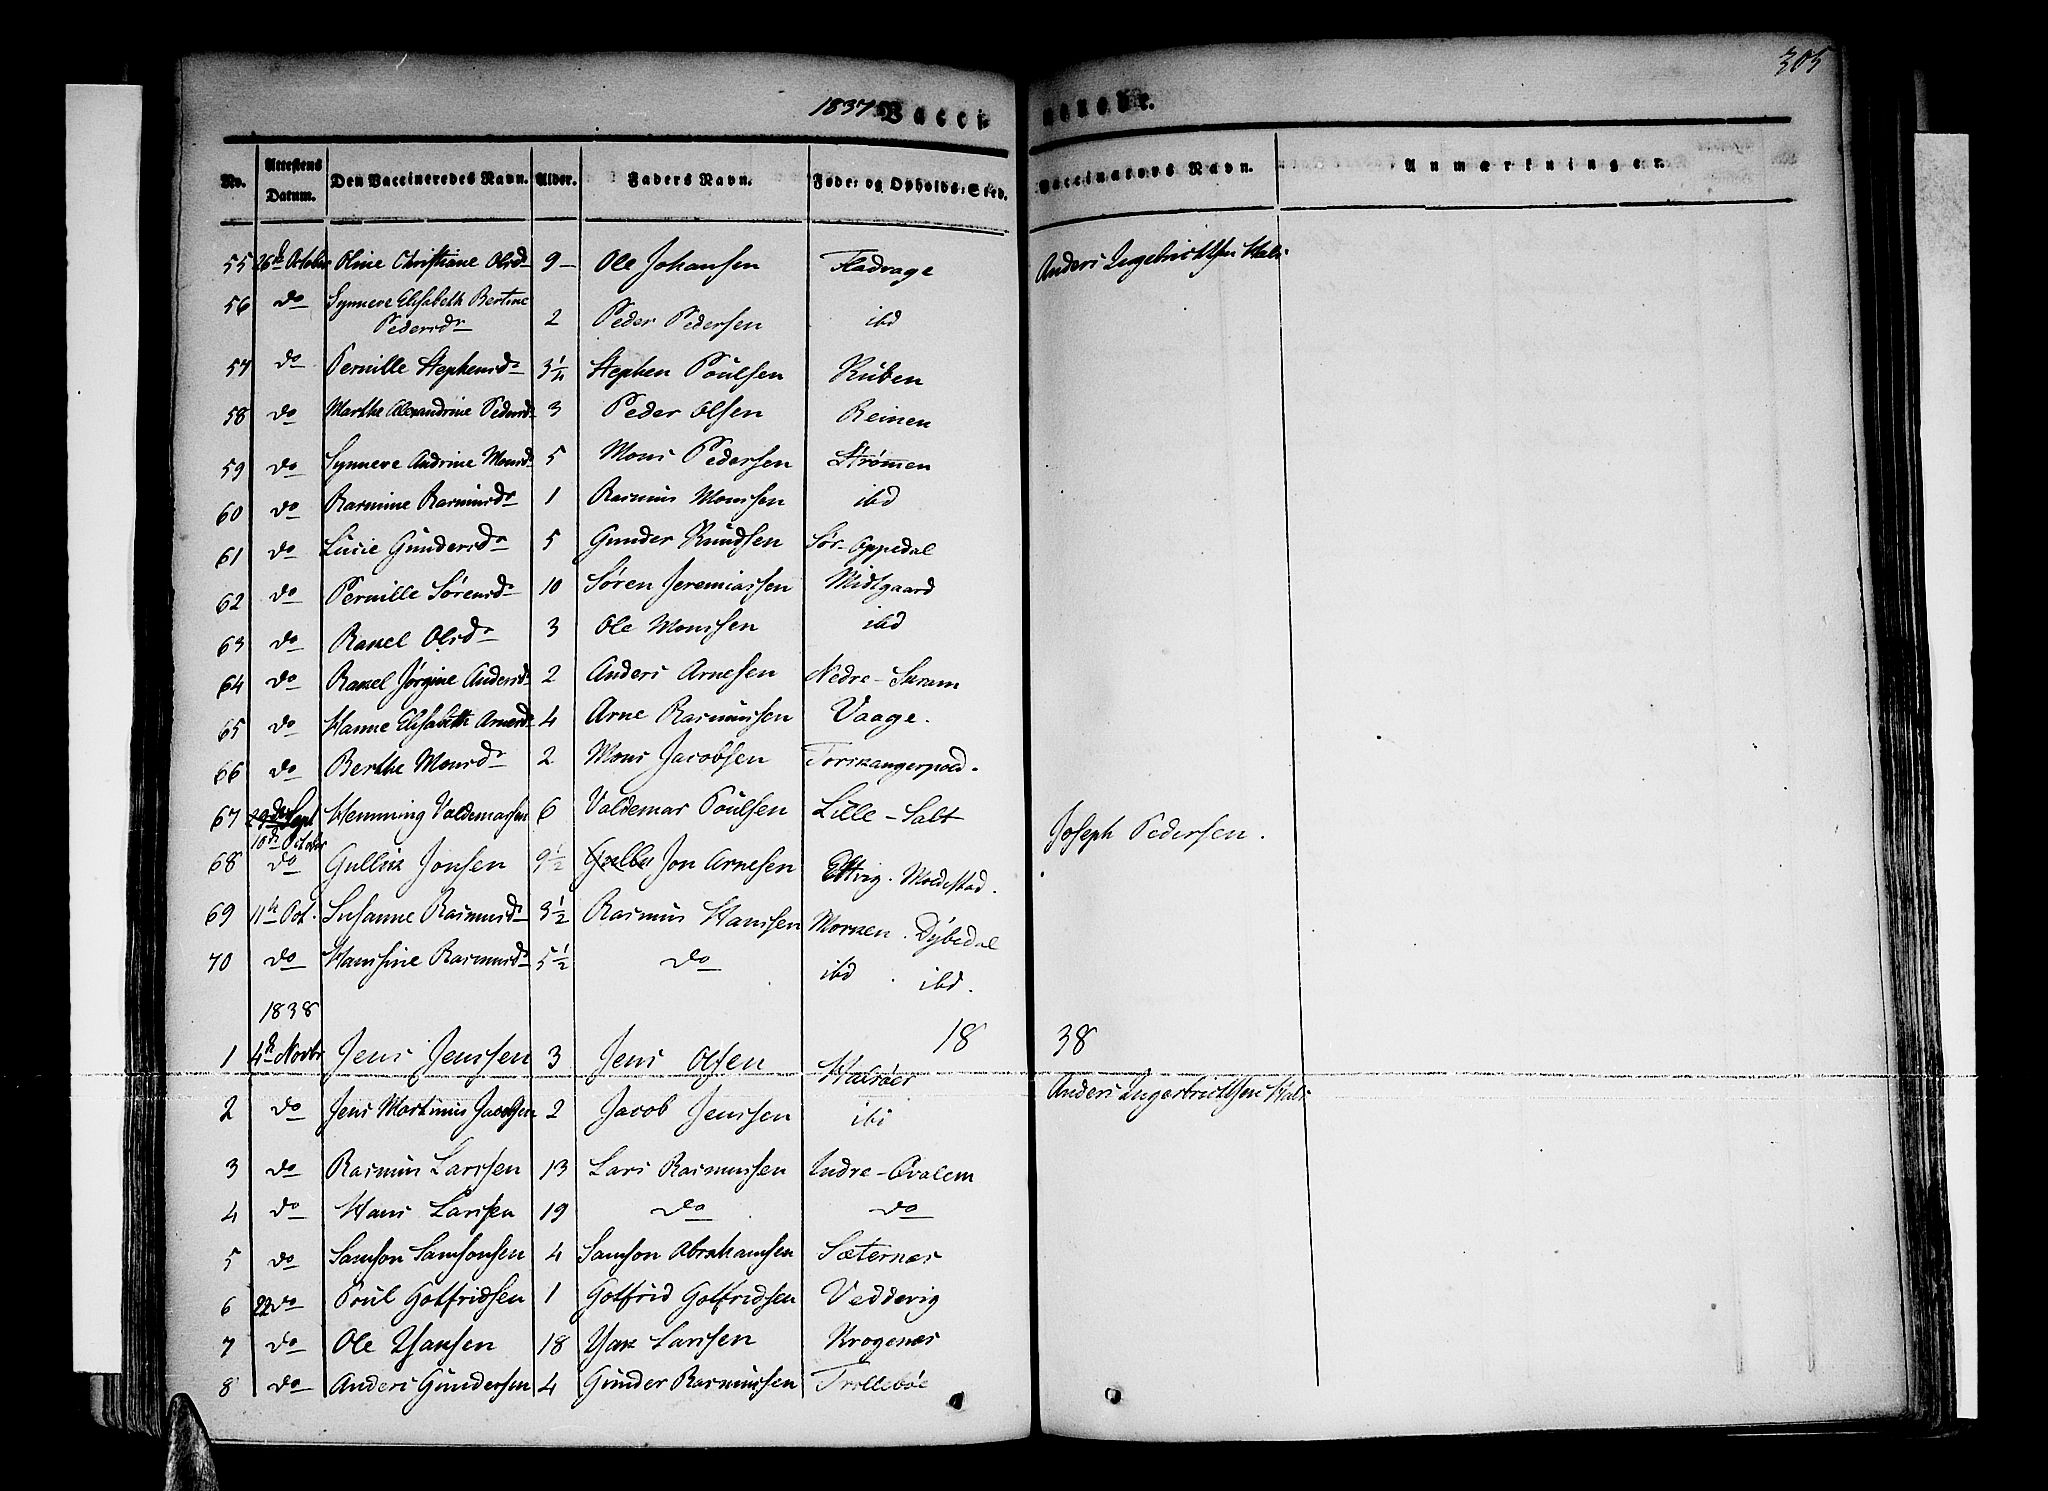 305
1837 Vacci nerede.
No. Attestens Datum. Den Vaccineredes Navn. Alder. Faders Navn. Føde- og Opholds-Sted. Vaccinateurs Navn. Anmærkninger.
55 26de October Oline Christiane Olsdr 9 – Ole Johansen Fladvage Anders Ingebrichtsen Hals
56 do Synneve Elisabeth Bertine
Pedersdr 2 Peder Pedersen ibd
57 do Pernille Stephensdr 3¼ Stephen Poulsen Ruben
58 do Marthe Alexandrine Pedersdr 3 Peder Olsen Reinen
59 do Synneve Andrine Monsdr 5 Mons Pedersen Strømen
60 do Rasmine Rasmusdr 1 Rasmus Monssen ibd
61 do Lucie Gundersdr 5 Gunder Knudsen Sør-Oppedal
62 do Pernille Sørensdr 10 Søren Jeremiassen Midtgaard
63 do Rakel Olsdr 3 Ole Monssen ibd
64 do Rakel Jørgine Andersdr 2 Anders Arnesen Nedre-Skram
65 do Hanne Elisabeth Arnesdr 4 Arne Rasmussen Vaage.
66 do Berthe Monsdr 2 Mons Jacobsen Torskangerpold.
67 29de Sept Hemming Valdemarsen 6 Valdemar Poulsen Lille-Salt Joseph Pedersen.
10de October
68 do Gullik Jonsen 9½ Jon Arnesen Moldestad.
69 11te Oct. Susanne Rasmusdr 3½ Rasmus Hanssen Morken. Dybedal
70 do Hansine Rasmusdr 5½ do ibd . ibd.
1838
18 38
1 4de Novbr Jens Jenssen 3 Jens Olsen Halsøer
2 do Jens Martinus Jacobsen 2 Jacob Jenssen ibi Anders Ingebrichtsen Hals
3 do Rasmus Larssen 13 Lars Rasmussen Indre-Qvalem
4 do Hans Larssen 19 do do
5 do Samson Samsonsen 4 Samson Abrahamsen Sæternæs
6 22 do Poul Gotfridsen 1 Gotfrid Gotfridsen Veddevig
7 do Ole Isaksen 18 Isak Larssen Krogenæs
8 do Anders Gundersen 4 Gunder Rasmussen Trollebøe